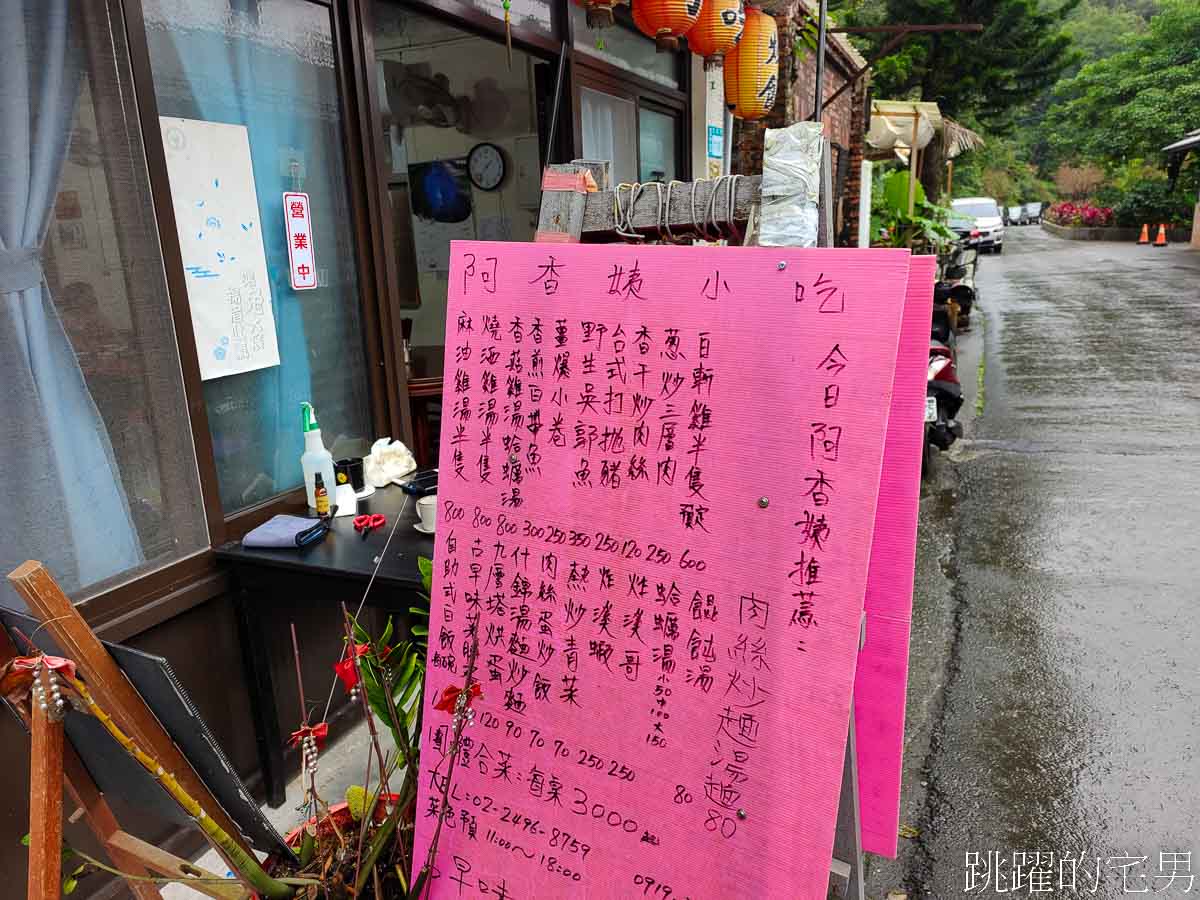 阿香姨小吃
今日阿香姨推薦:
肉絲炒麵湯麵80
白斬雞半隻 預定
蔥炒三層肉
香干炒肉絲
台式打拋豬
野生吳郭魚
薑爆小卷
香煎白帶魚
香菇雞湯蛤蠣湯
燒酒雞湯半隻
麻油雞湯半隻
800 800 800 300 250 350 250 120 250 600
餛飩湯 80
蛤蠣湯小50中100大150
炸溪哥
炸溪蝦
熱炒青菜
肉絲蛋炒飯
什錦湯麵炒麵
九層塔烘蛋
古早味
自助式白飯
120 90 70 70 250 250
團體合菜:每桌3000起
TEL:02-2496-8759
菜色預
11:00~18:00
0919
早味
營業中
跳躍的宅男